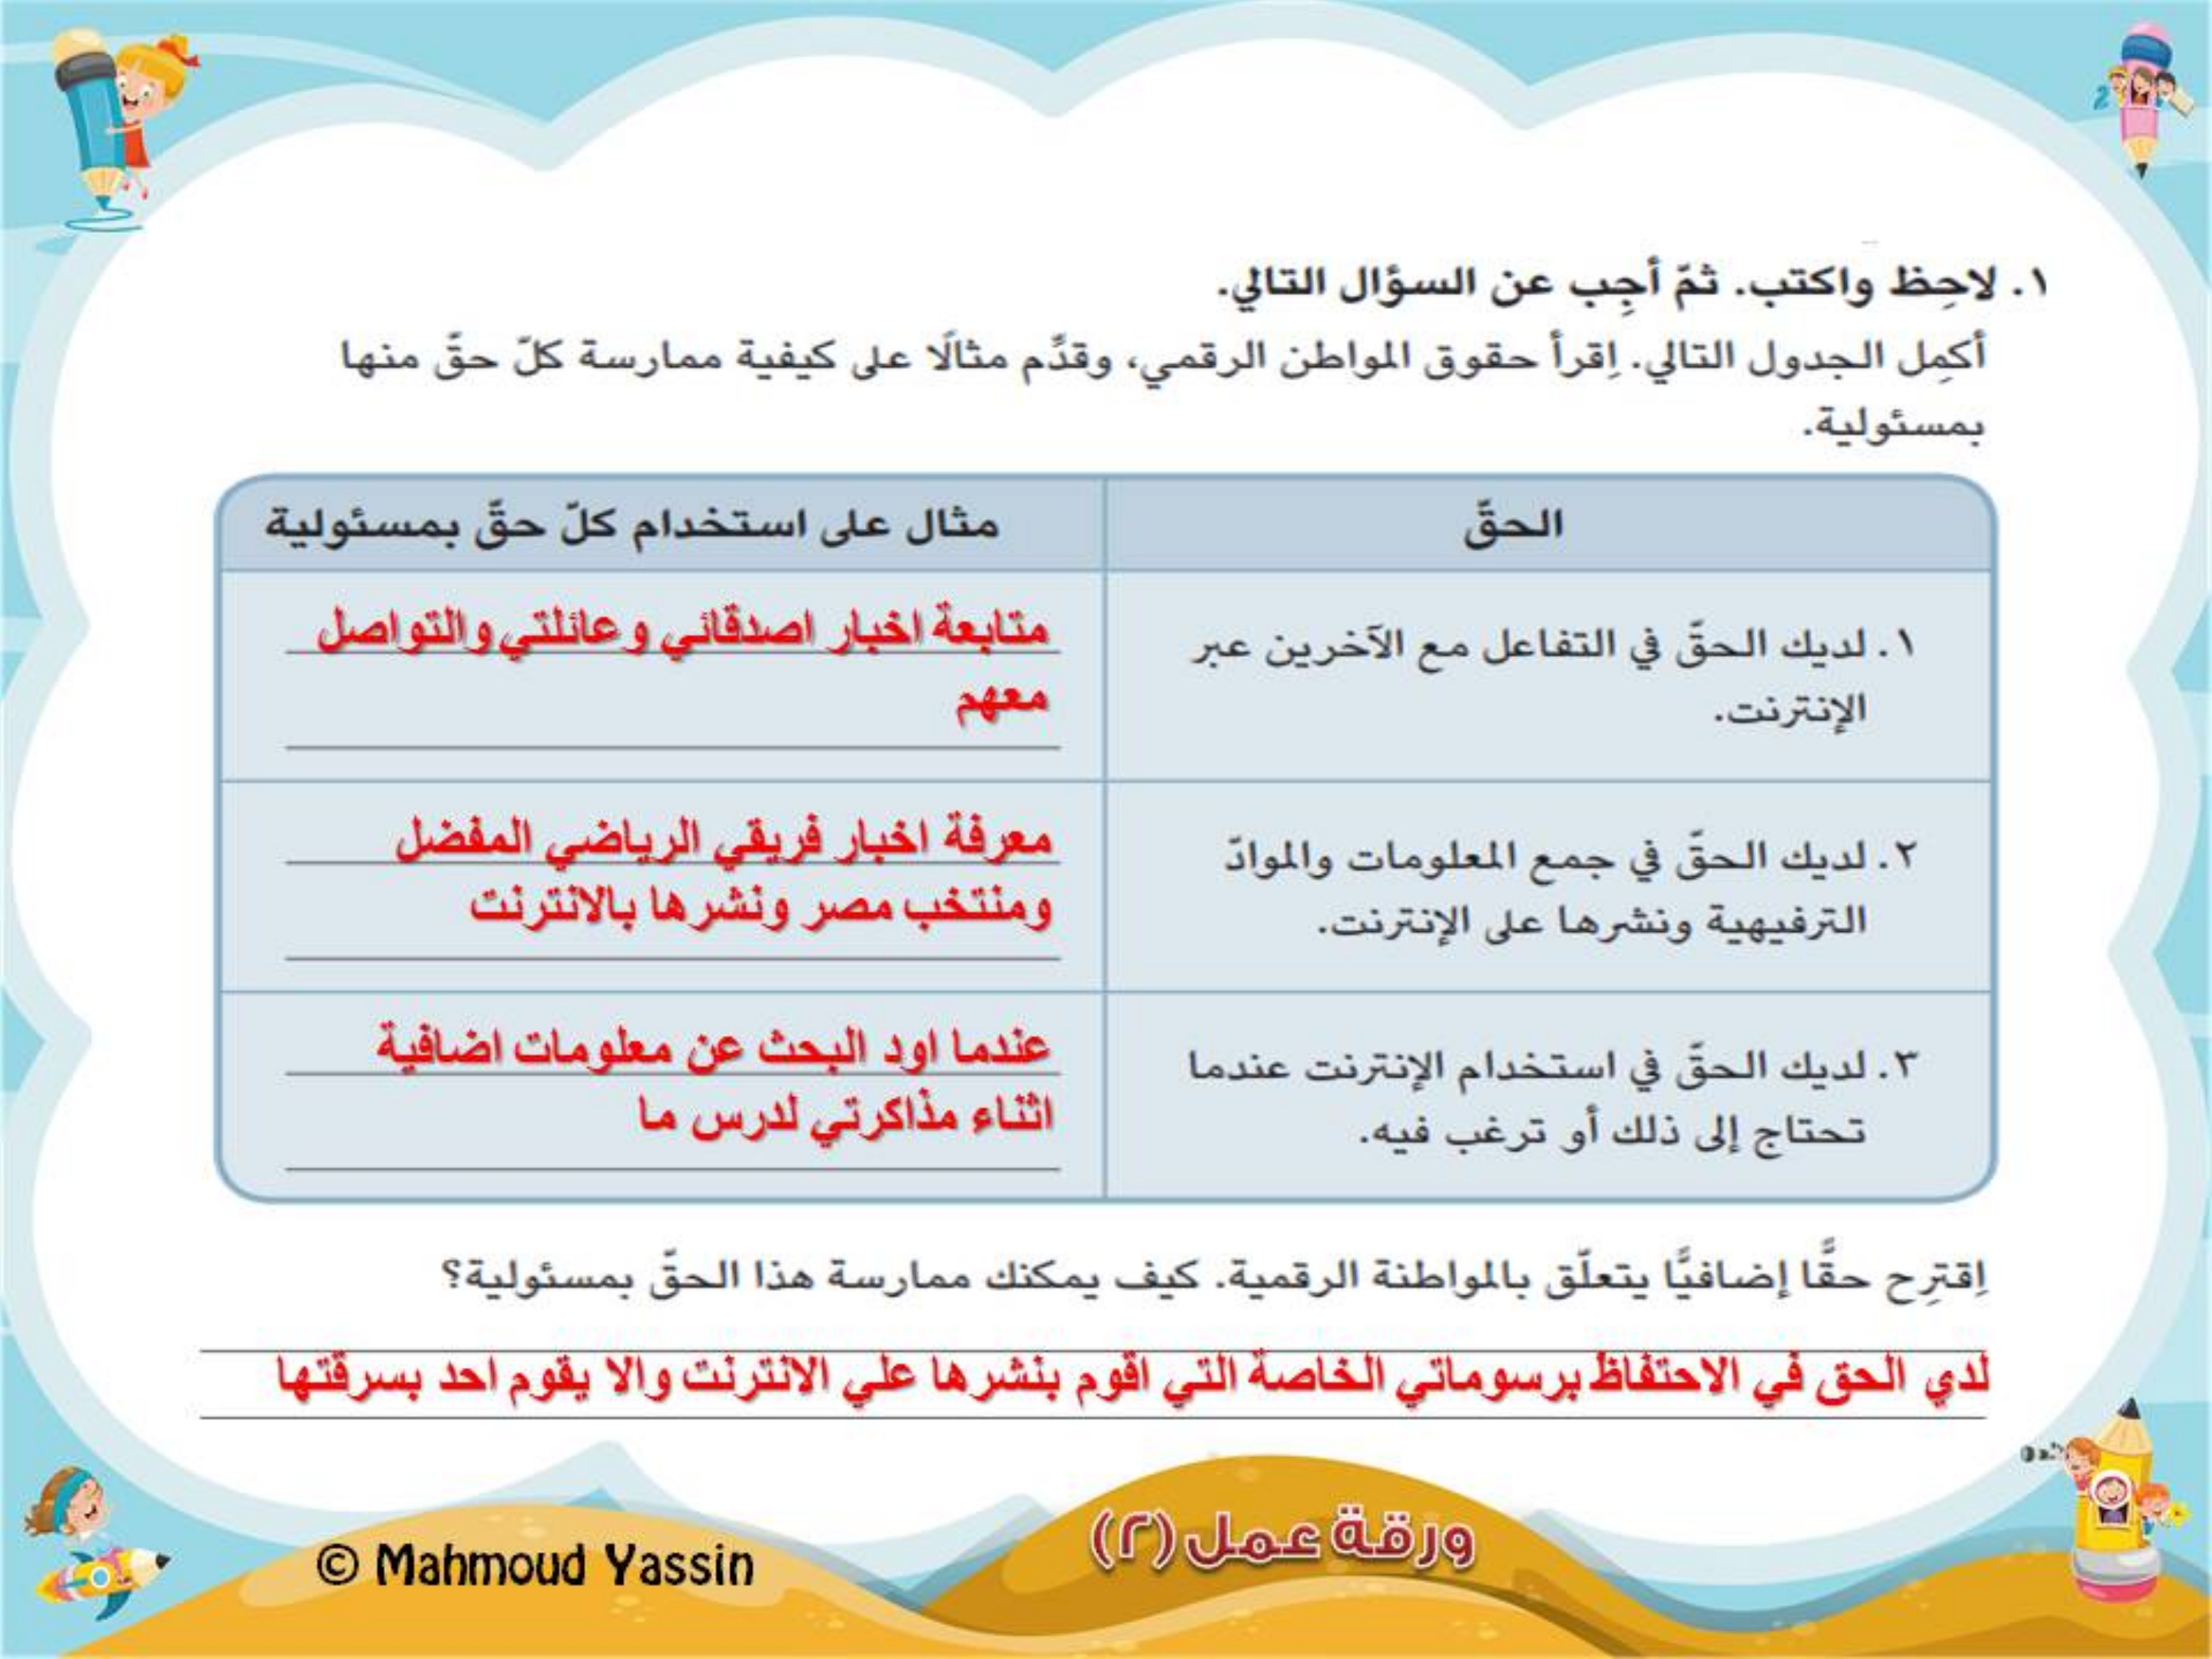 ١. لاحِظ واكتب. ثمّ أجِب عن السؤال التالي.
أكمِل الجدول التالي. اِقرأ حقوق المواطن الرقمي، وقدِّم مثالًا على كيفية ممارسة كلّ حقّ منها
بمسئولية.
الحقّ
مثال على استخدام كلّ حقّ بمسئولية
١. لديك الحقّ في التفاعل مع الآخرين عبر
الإنترنت.
متابعة اخبار اصدقائي وعائلتي والتواصل
معهم
٢. لديك الحقّ في جمع المعلومات والموادّ
الترفيهية ونشرها على الإنترنت.
معرفة اخبار فريقي الرياضي المفضل
ومنتخب مصر ونشرها بالانترنت
٣. لديك الحقّ في استخدام الإنترنت عندما
تحتاج إلى ذلك أو ترغب فيه.
عندما اود البحث عن معلومات اضافية
اثناء مذاكرتي لدرس ما
اِقترِح حقًّا إضافيًّا يتعلّق بالمواطنة الرقمية. كيف يمكنك ممارسة هذا الحقّ بمسئولية؟
لدي الحق في الاحتفاظ برسوماتي الخاصة التي اقوم بنشرها علي الانترنت والا يقوم احد بسرقتها
ورقة عمل (٢)
© Mahmoud Yassin